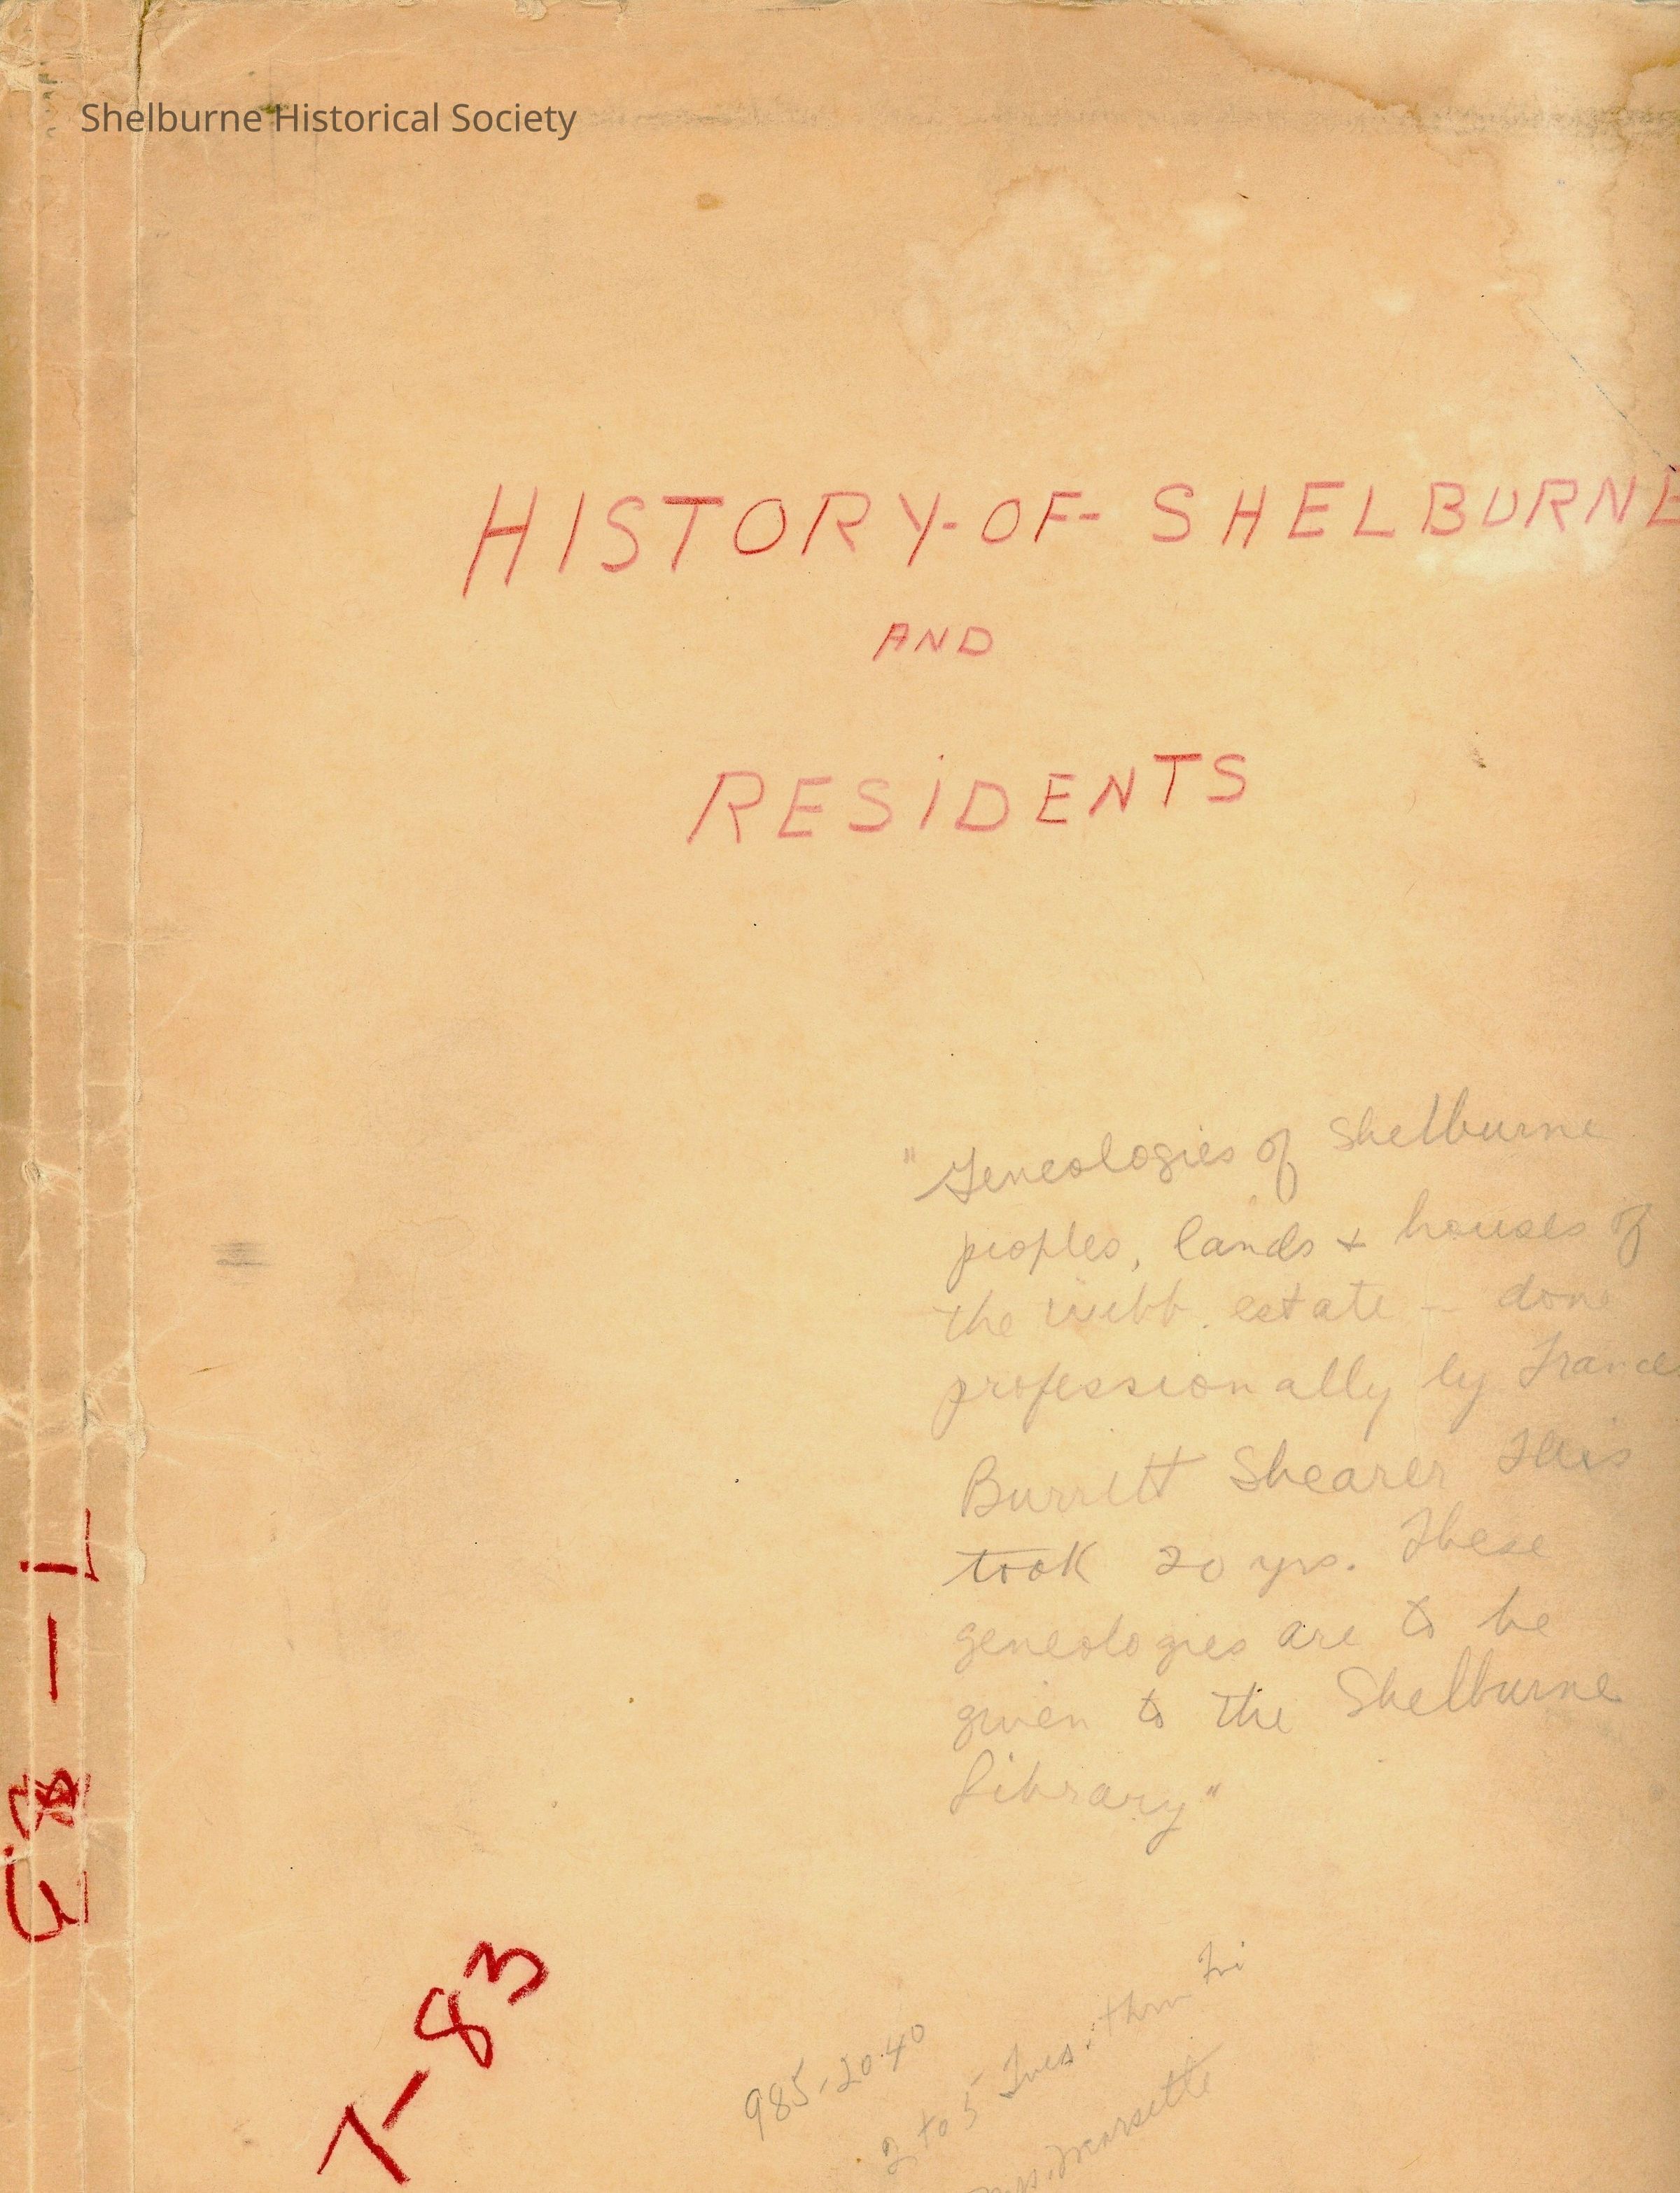 Shelburne Historical Society
HISTORY-OF- SHELBURNE
AND
RESiDENTS
"Geneologies of Shelburne
peoples, lands + houses of
the Webb estate - done
professionally by Frances
Burritt Shearer This
took 20 yrs. These
geneologies are to be
given to the Shelburne
Library"
7-83
7-83
985-2040
2 to 5 Tues. thru Fri